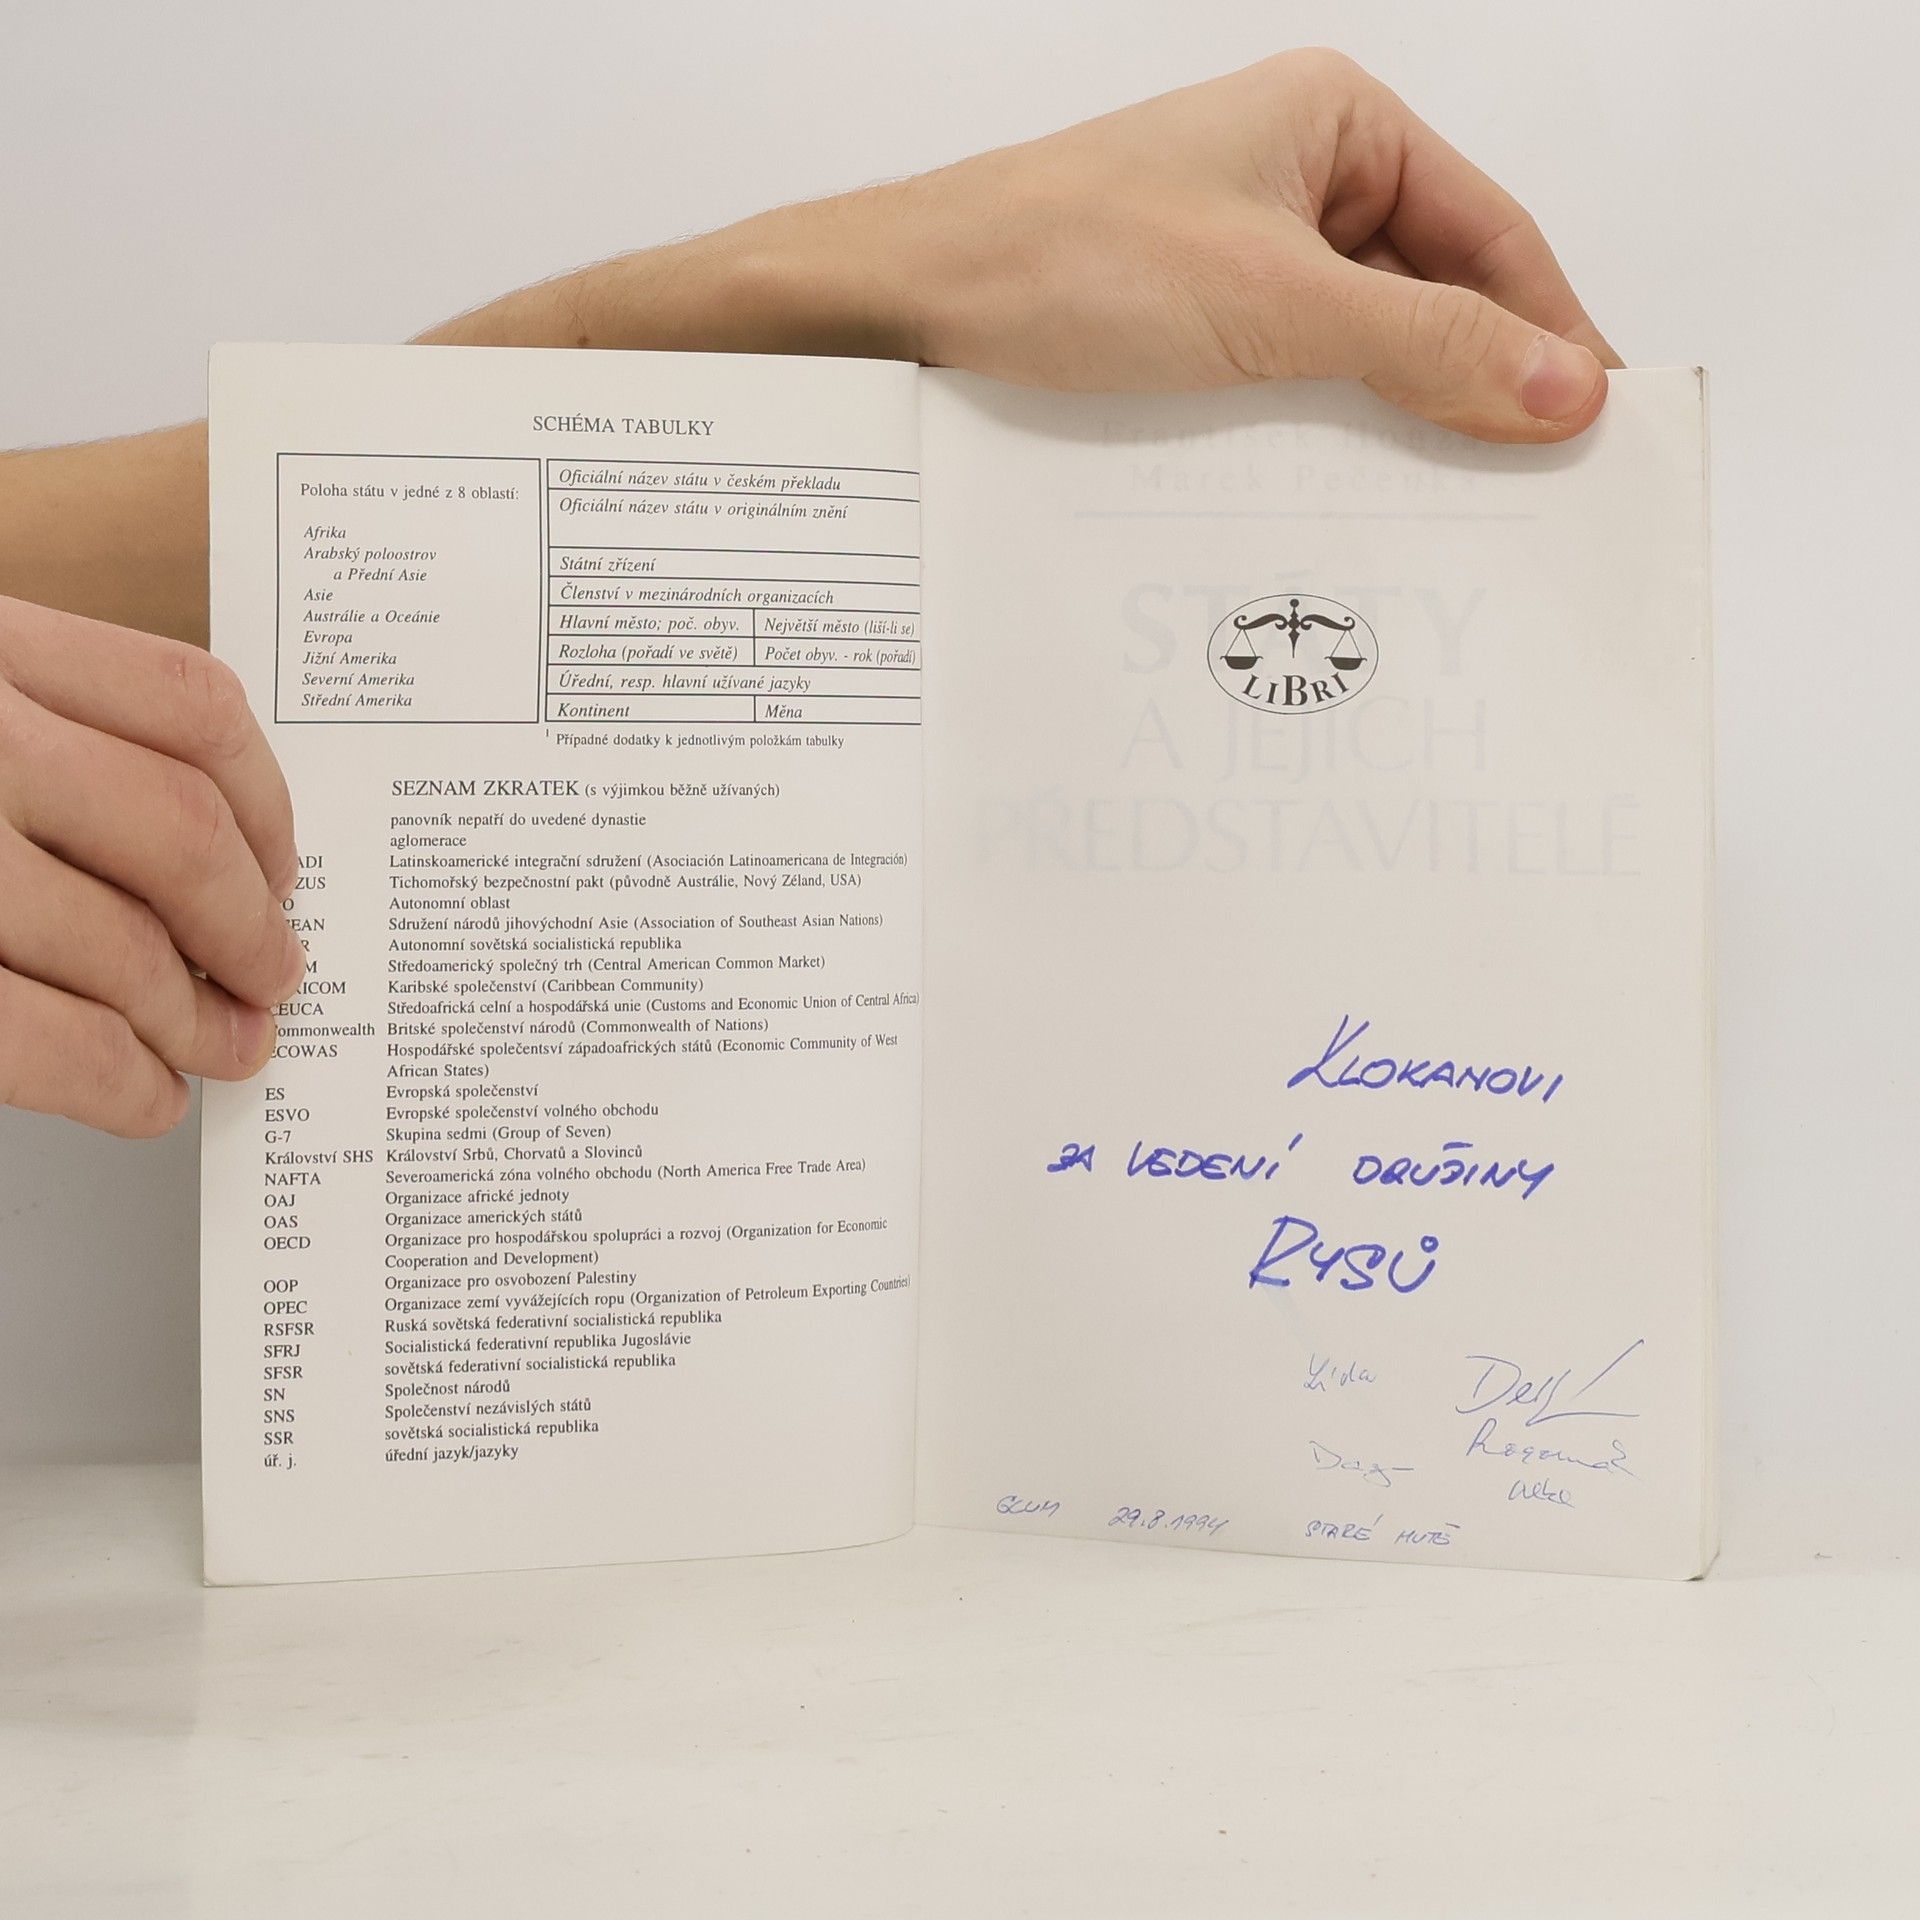 SCHÉMA TABULKY
Poloha státu v jedné z 8 oblastí:
Afrika
Arabský poloostrov
a Přední Asie
Asie
Austrálie a Oceánie
Evropa
Jižní Amerika
Severní Amerika
Střední Amerika
Oficiální název státu v českém překladu
Oficiální název státu v originálním znění
Státní zřízení
Členství v mezinárodních organizacích
Hlavní město; poč. obyv. Největší město (liší-li se)
Rozloha (pořadí ve světě) Počet obyv. - rok (pořadí)
Úřední, resp. hlavní užívané jazyky
Kontinent Měna
1 Případné dodatky k jednotlivým položkám tabulky
SEZNAM ZKRATEK (s výjimkou běžně užívaných)
panovník nepatří do uvedené dynastie
aglomerace
ADI Latinskoamerické integrační sdružení (Asociación Latinoamericana de Integración)
ZUS Tichomořský bezpečnostní pakt (původně Austrálie, Nový Zéland, USA)
O Autonomní oblast
EAN Sdružení národů jihovýchodní Asie (Association of Southeast Asian Nations)
R Autonomní sovětská socialistická republika
M Středoamerický společný trh (Central American Common Market)
ICOM Karibské společenství (Caribbean Community)
CEUCA Středoafrická celní a hospodářská unie (Customs and Economic Union of Central Africa)
ommonwealth Britské společenství národů (Commonwealth of Nations)
ECOWAS Hospodářské společentsví západoafrických států (Economic Community of West
African States)
ES Evropská společenství
ESVO Evropské společenství volného obchodu
G-7 Skupina sedmi (Group of Seven)
Království SHS Království Srbů, Chorvatů a Slovinců
NAFTA Severoamerická zóna volného obchodu (North America Free Trade Area)
OAJ Organizace africké jednoty
OAS Organizace amerických států
OECD Organizace pro hospodářskou spolupráci a rozvoj (Organization for Economic
Cooperation and Development)
OOP Organizace pro osvobození Palestiny
OPEC Organizace zemí vyvážejících ropu (Organization of Petroleum Exporting Countries)
RSFSR Ruská sovětská federativní socialistická republika
SFRJ Socialistická federativní republika Jugoslávie
SFSR sovětská federativní socialistická republika
SN Společnost národů
SNS Společenství nezávislých států
SSR sovětská socialistická republika
úř. j. úřední jazyk/jazyky
STÁTY
A JEJICH
PŘEDSTAVITELÉ
LIBRI
KLOKANOVI
ZA VEDENÍ DRUŽINY
RYSŮ
Lída
29.8.1994 STARÉ HUTĚ